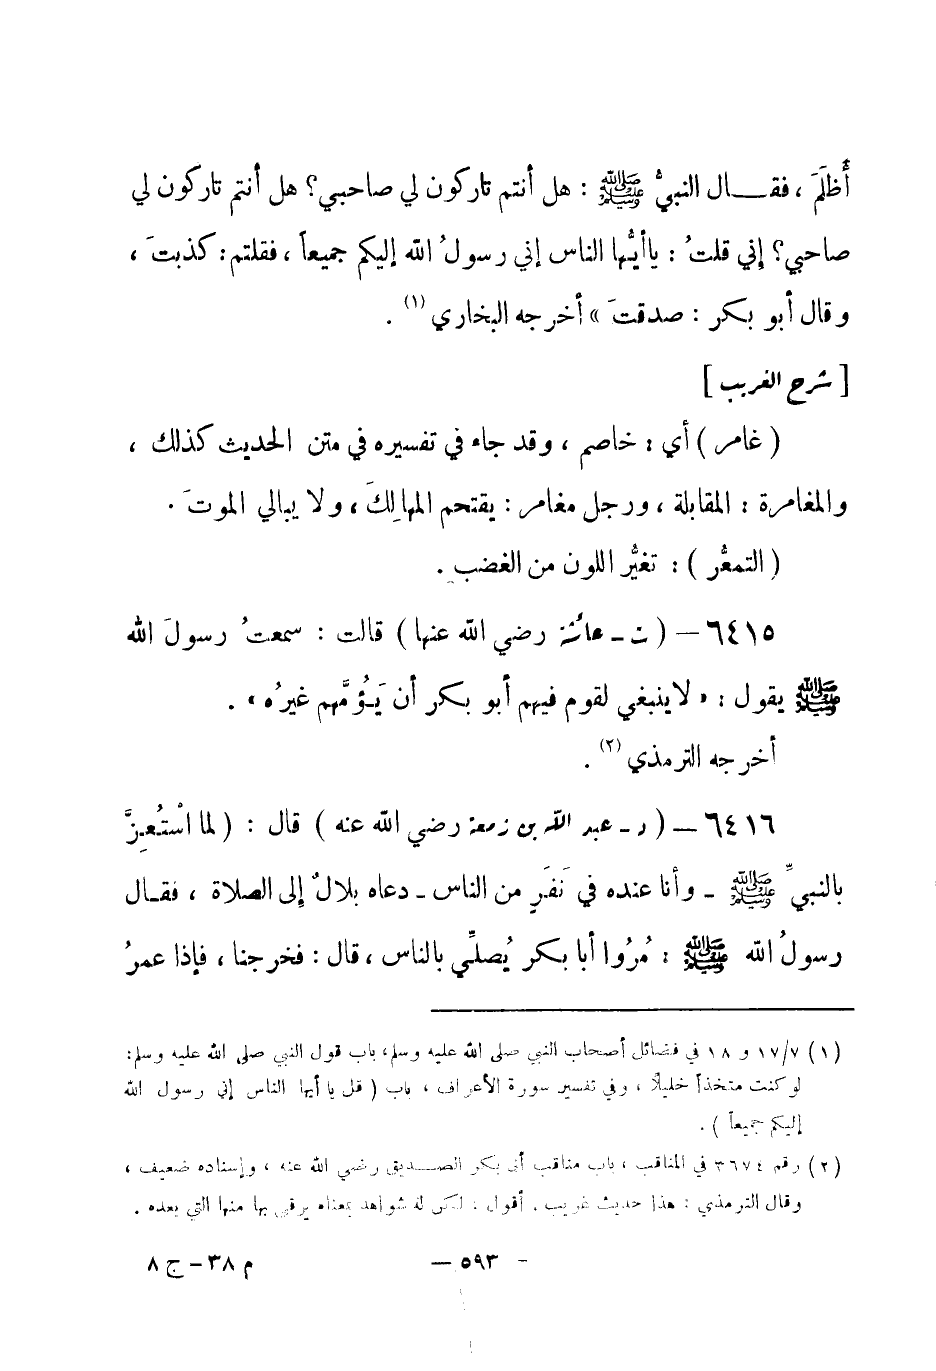 أَظلَمَ ، فقـــال النبيُّ ﷺ : هل أنتم تاركون لي صاحبي؟ هل أنتم تاركون لي
صاحبي؟ إني قلتُ : ياأيُّها الناس إني رسولُ الله إليكم جميعاً ، فقلتم : كذبتَ ،
وقال أبو بكر : صدقتَ » أخرجه البخاري (١) .
[ شرح الغريب ]
( غامر ) أي : خاصم ، وقد جاء في تفسيره في متن الحديث كذلك ،
والمغامرة : المقابلة ، ورجل مغامر : يقتحم المهالِكَ ، ولا يبالي الموتَ .
( التمعُّر ) : تغيُّر اللون من الغضب .
٦٤١٥ – ( ت ـ عائشة رضي الله عنها ) قالت : سمعتُ رسولَ الله
ﷺ يقول : « لاينبغي لقوم فيهم أبو بكر أن يَؤُمَّهم غيرُه » .
أخرجه الترمذي (٢) .
٦٤١٦ – ( د ـ عبد الله بن زمعة رضي الله عنه ) قال : ( لما اسْتُعِزَّ
بالنبيِّ ﷺ ـ وأنا عنده في نَفَرٍ من الناس ـ دعاه بلالٌ إلى الصلاة ، فقـال
رسولُ الله ﷺ : مُرُوا أبا بكر يُصلِّي بالناس ، قال : فخرجنا ، فإذا عمرُ
(١) ١٧/٧ و ١٨ في فضائل أصحاب النبي صلى الله عليه وسلم، باب قول النبي صلى الله عليه وسلم:
لو كنت متخذاً خليلاً ، وفي تفسير سورة الأعراف ، باب ( قل يا أيها الناس إني رسول الله
إليكم جميعاً ) .
(٢) رقم ٣٦٧٤ في المناقب ، باب مناقب أبي بكر الصـديق رضي الله عنه ، وإسناده ضعيف ،
وقال الترمذي : هذا حديث غريب . أقول : لكن له شواهد بمعناه يرقى بها منها التي بعده .
- ٥٩٣ – م ٣٨ – ج ٨